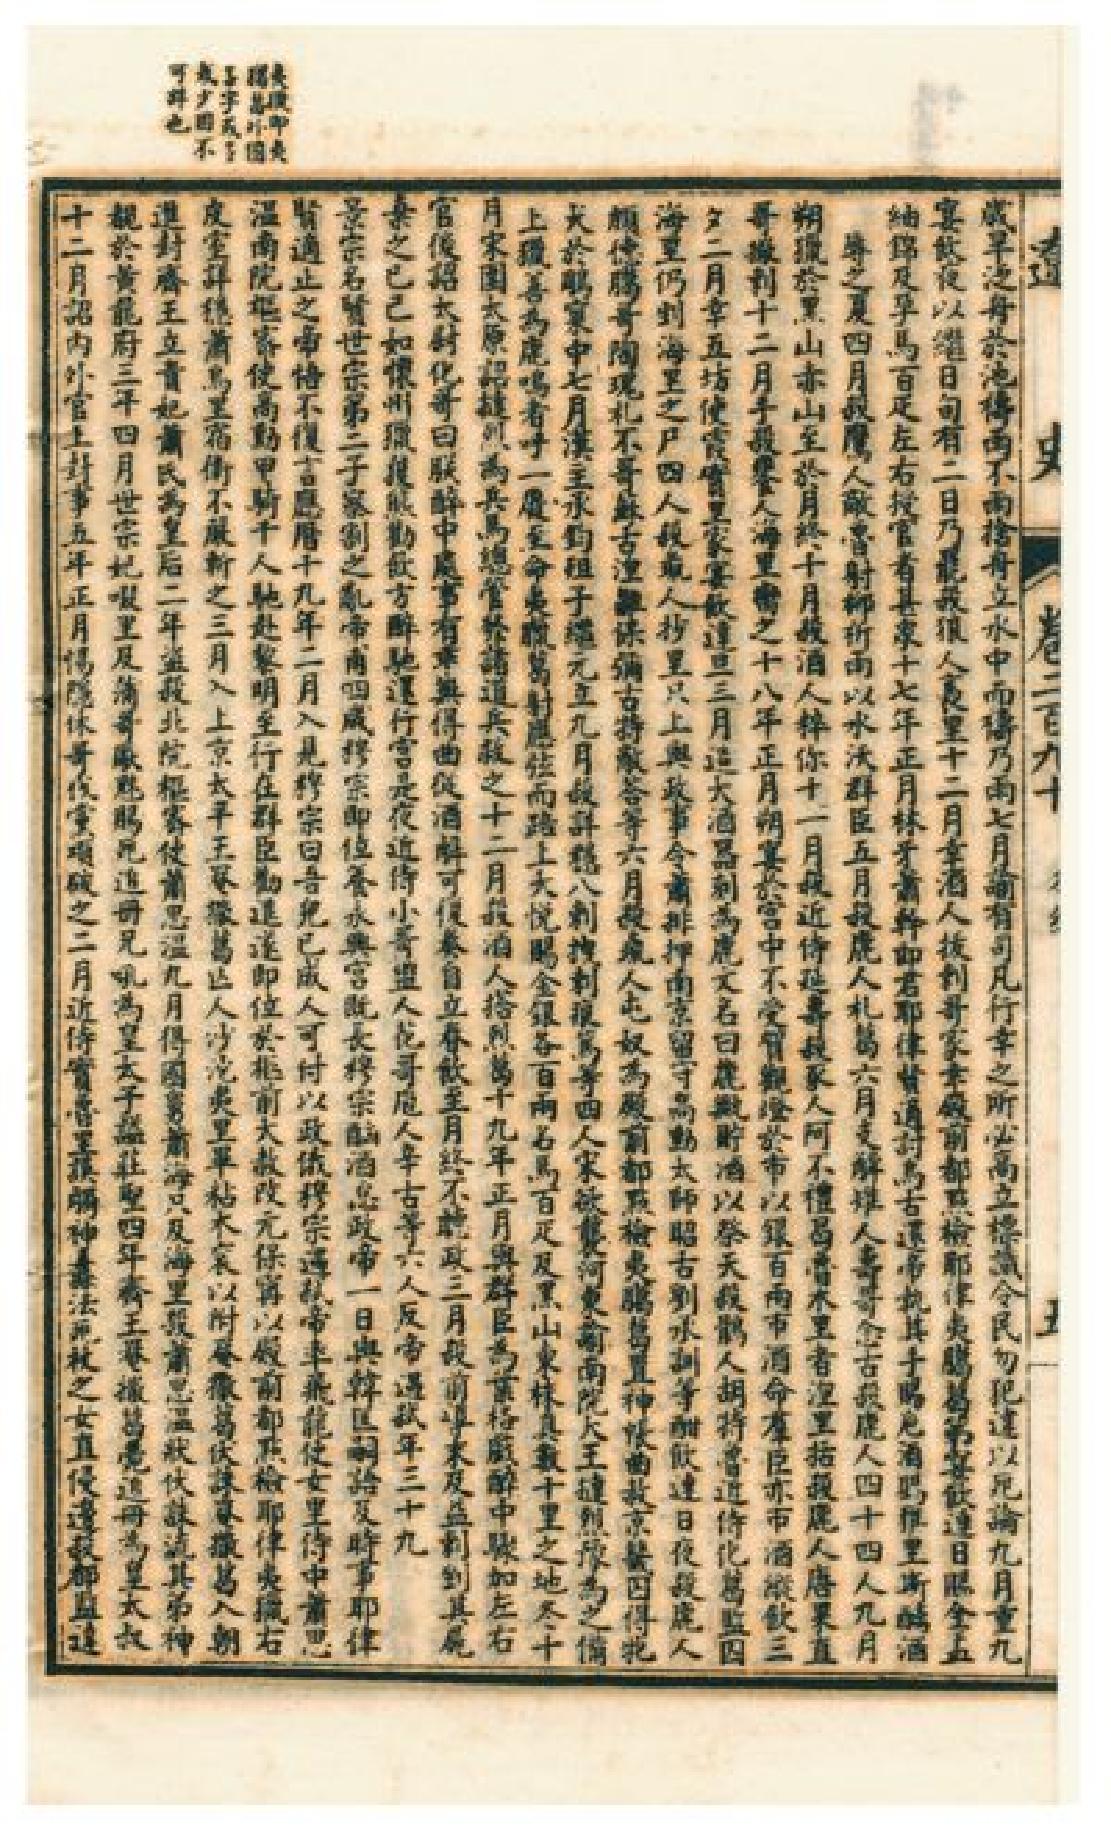 歲旱泛舟於池禱雨不雨捨舟立水中而禱乃雨七月諭有司凡行幸之所必高立標識令民勿犯違以死論九月重九
宴飲夜以繼日旬有二日乃罷殺狼人裊里十二月幸酒人拔剌哥家幸殿前都點檢耶律夷臘葛第宴飲連日賜金盂
紬錦及孕馬百疋左右授官者甚衆十七年正月林牙蕭幹郎君耶律賢適討烏古還帝執其手賜卮酒賜猥里斯酗酒
辱之夏四月殺鷹人敵魯射柳祈雨以水沃群臣五月殺鹿人札葛六月支解雉人壽哥念古殺鹿人四十四人九月
朔獵於黑山赤山至於月終十月殺酒人粹你十一月殺近侍廷壽殺豕人阿不禮曷魯朮里者涅里括殺鹿人唐果直
哥撒剌十二月手殺饔人海里臠之十八年正月朔宴於宮中不受賀觀燈於市以銀百兩市酒命羣臣亦市酒縱飲三
夕二月幸五坊使霞實里家宴飲達旦三月造大酒器刻為鹿文名曰鹿甒貯酒以祭天殺鶻人胡特魯近侍化葛監囚
海里仍剉海里之尸四人殺彘人抄里只上與政事令蕭排押南京留守高勳太師昭古劉承訓等酣飲連日夜殺鹿人
頗德臘哥陶瑰札不哥蘇古涅雛保彌古特敵荅等六月殺彘人屯奴為殿前都點檢夷臘葛置神帳曲赦京畿囚得牝
犬於鵰窠中七月漢主承鈞祖子繼元立九月殺詳穩八剌拽剌痕篤等四人宋欲襲河東諭南院大王撻烈豫為之備
上獵善為鹿鳴者呼一麚至命夷臘葛射應弦而踣上大悅賜金銀各百兩名馬百疋及黑山東抹真數十里之地冬十
月宋圍太原詔撻烈為兵馬總管發諸道兵救之十二月殺酒人搭烈葛十九年正月與群臣為葉格戲醉中驟加左右
官後詔太尉化哥曰朕醉中處事有乖無得曲從酒解可復奏自立春飲至月終不聽政三月殺前導末及益剌剉其屍
棄之己巳如懷州獵獲熊歡飲方醉馳還行宮是夜近侍小哥盥人花哥庖人辛古等六人反帝遇弒年三十九
景宗名賢世宗第二子察割之亂帝甫四歲穆宗即位養永興宮既長穆宗酗酒怠政帝一日與韓匡嗣語及時事耶律
賢適止之帝悟不復言應曆十九年二月入見穆宗曰吾兒已成人可付以政俄穆宗遇弒帝率飛龍使女里侍中蕭思
溫南院樞密使高勳甲騎千人馳赴黎明至行在群臣勸進遂即位於柩前大赦改元保寧以殿前都點檢耶律夷臘右
皮室詳穩蕭烏里宿衛不嚴斬之三月入上京太平王罨撒葛亡人沙沱夷里畢粘木袞以附罨撒葛伏誅罨撒葛入朝
進封齊王立貴妃蕭氏為皇后二年盜殺北院樞密使蕭思溫九月得國舅蕭海只及海里殺蕭思溫狀伏誅流其弟神
覩於黃龍府三年四月世宗妃啜里及蒲哥厭魅賜死追冊兄吼為皇太子諡莊聖四年齊王罨撒葛薨追冊為皇太叔
十二月詔內外官上封事五年正月惕隱休哥伐党項破之二月近侍實魯里誤觸神纛法死杖之女直侵邊殺都監達
夷臘即夷
臘葛外國
名字或多
或少固不
可拜也
遼
史
卷二百九十
五